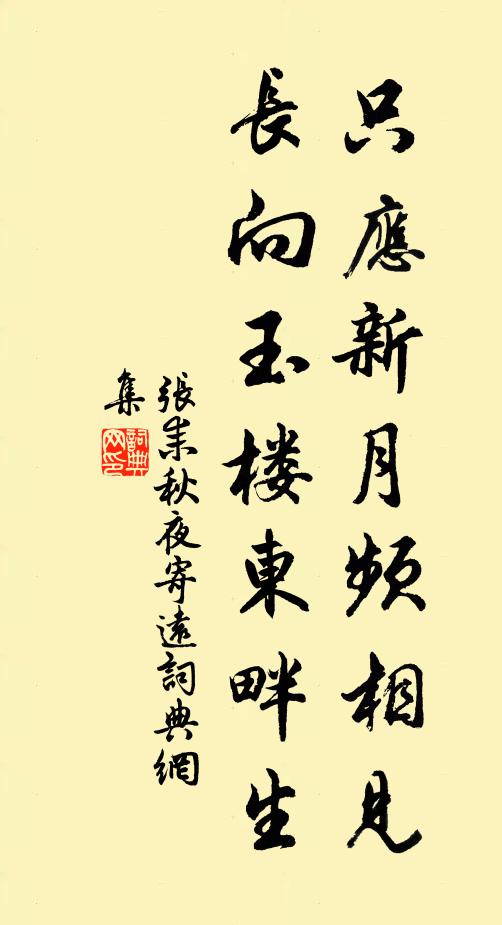 只應新月頻相見
長向玉楼東畔生
張耒秋夜寄遠詞典網
集
詞典
网印